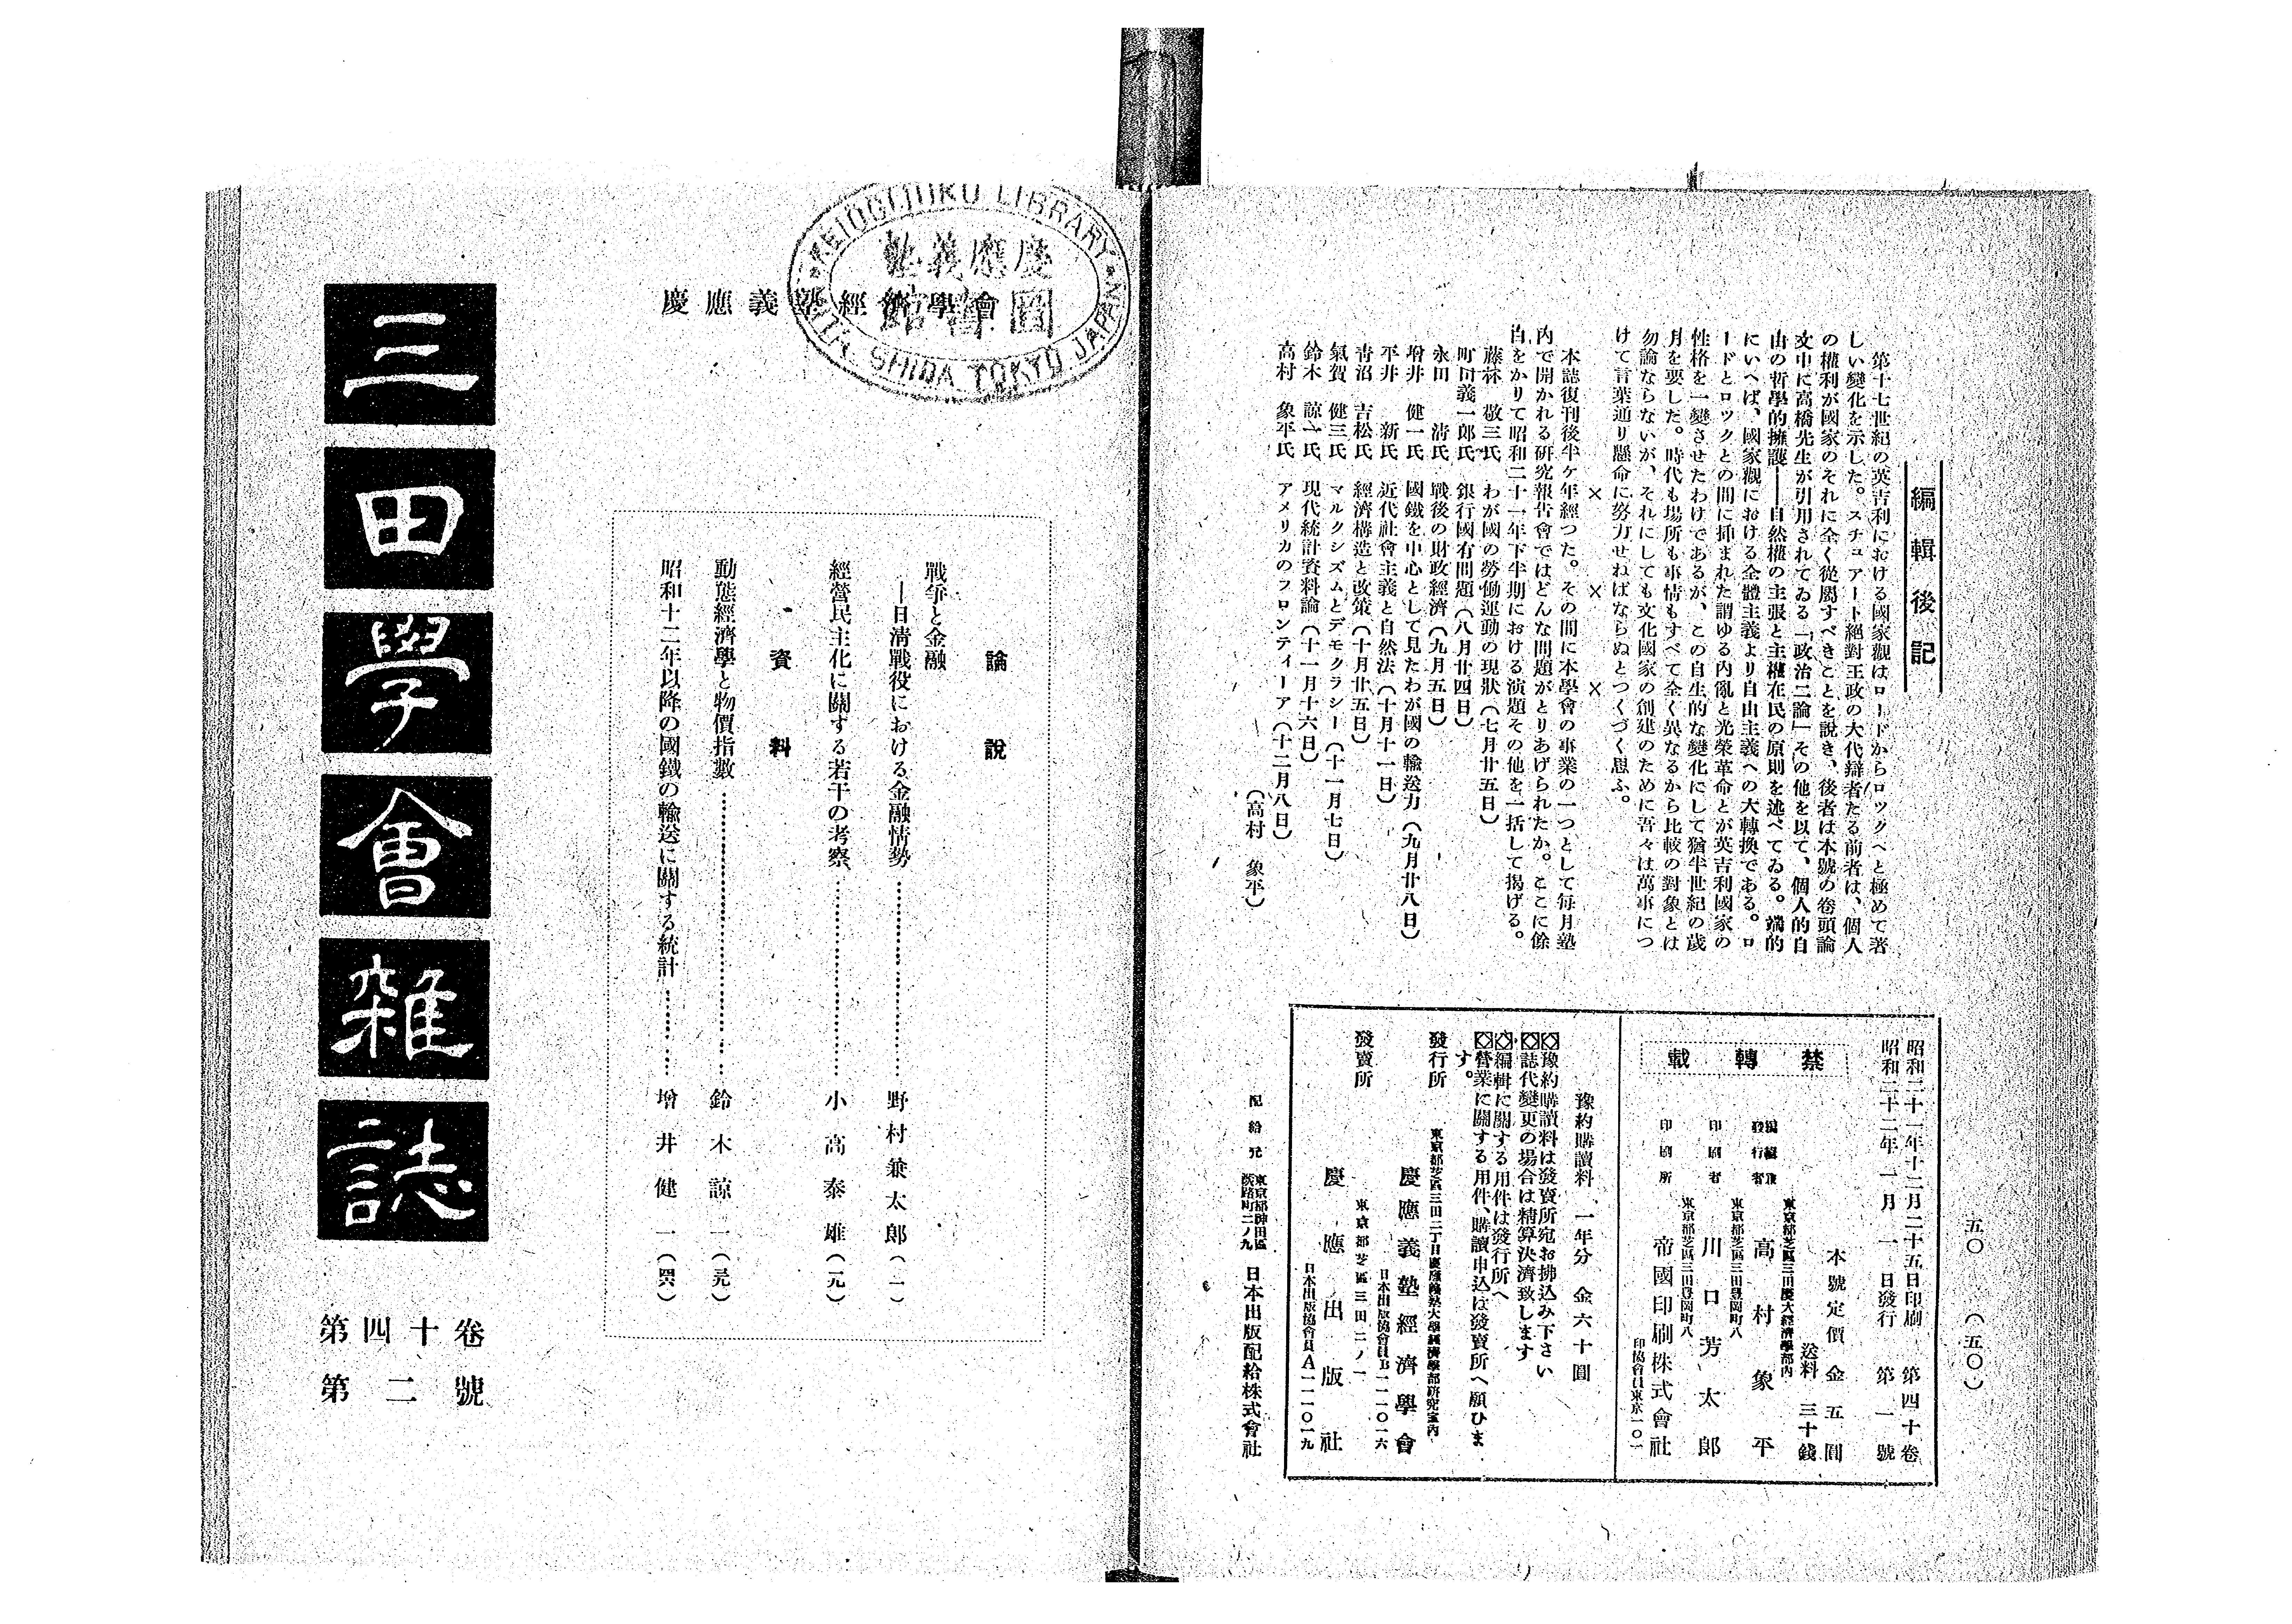 編輯後記
第十七世紀の英吉利における國家觀はロードからロックへと極めて著
しい變化を示した。スチュアート絕對王政の大代辯者たる前者は、個人
の權利が國家のそれに全く從屬すべきことを說き、後者は本號の卷頭論
文中に高橋先生が引用されてゐる「政治二論」その他を以て、個人的自
由の哲學的擁護――自然權の主張と主權在民の原則を述べてゐる。端的
にいへば、國家觀における全體主義より自由主義への大轉換である。ロ
ードとロックとの間に挿まれた謂ゆる內亂と光榮革命とが英吉利國家の
性格を一變させたわけであるが、この自生的な變化にして猶半世紀の歲
月を要した。時代も場所も事情もすべて全く異なるから比較の對象とは
勿論ならないが、それにしても文化國家の創建のために吾々は萬事につ
けて言葉通り懸命に努力せねばならぬとつくづく思ふ。
× × ×
本誌復刊後半ケ年經つた。その間に本學會の事業の一つとして每月塾
內で開かれる硏究報吿會ではどんな問題がとりあげられたか。ここに餘
白をかりて昭和二十一年下半期における演題その他を一括して揭げる。
藤林 敬三氏 わが國の勞働運動の現狀(七月廿五日)
町田義一郎氏 銀行國有問題(八月廿四日)
永田 淸氏 戰後の財政經濟(九月五日)
增井 健一氏 國鐵を中心として見たわが國の輸送力(九月廿八日)
平井 新氏 近代社會主義と自然法(十月十一日)
靑沼 吉松氏 經濟構造と改策(十月廿五日)
氣賀 健三氏 マルクシズムとデモクラシー(十一月七日)
鈴木 諒一氏 現代統計資料論(十一月十六日)
高村 象平氏 アメリカのフロンティーア(十二月八日)
(高村 象平)
五〇 (五〇)
昭和二十一年十二月二十五日印刷 第四十卷
昭和二十二年 一月 一日發行 第一號
禁轉載
本號定價 金五圓
送料 三十錢
東京都芝區三田慶大經濟學部內
編輯兼
發行者 高村象平
東京都芝區三田豐岡町八
印刷者 川口芳太郎
東京都芝區三田豐岡町八
印刷所 帝國印刷株式會社
印協會員東京一〇一
豫約購讀料 一年分 金六十圓
豫約購讀料は發賣所宛お拂込み下さい
誌代變更の場合は精算決濟致します
編輯に關する用件は發行所へ
營業に關する用件、購讀申込は發賣所へ願ひま
す。
東京都芝區三田二丁目慶應義塾大學經濟學部硏究室內
發行所 慶應義塾經濟學會
日本出版協會員B一一一〇一六
東京都芝區三田二ノ一
發賣所 慶應出版社
日本出版協會員A一一一〇一九
配給元 東京都神田區
淡路町二ノ九 日本出版配給株式會社
KEIOGIJUKU LIBRARY
MITA SHIBA TOKYO JAPAN
慶應義塾
圖書館
慶應義塾經濟學會
論說
戰爭と金融
―日淸戰役における金融情勢……野村兼太郎(一)
經營民主化に關する若干の考察……小高泰雄(一九)
資料
動態經濟學と物價指數……鈴木諒一(三九)
昭和十二年以降の國鐵の輸送に關する統計……增井健一(四六)
三田學會雜誌
第四十卷
第二號